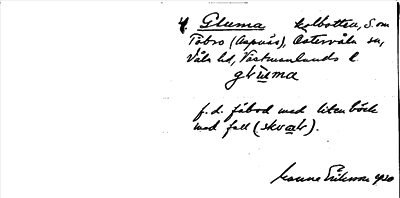 Gluma kolbotten, S. om
Töbro (Aspnäs), Östervåla sn,
Våla hd, Västmanlands l.
glūma
f.d. fäbod med liten bäck
med fall (skvalt).
Manne Eriksson 1930